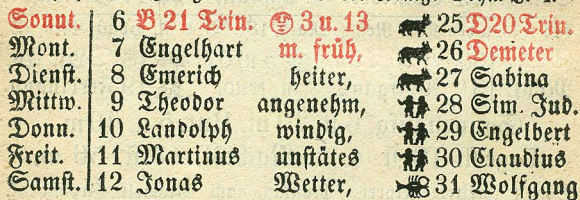 Sonnt. 6 B 21 Trin. 3 u. 13 25 D 20 Trin.
Mont. 7 Engelhart m. früh, 26 Demeter
Dienst. 8 Emerich heiter, 27 Sabina
Mittw. 9 Theodor angenehm, 28 Sim. Jud.
Donn. 10 Landolph windig, 29 Engelbert
Freit. 11 Martinus unstätes 30 Claudius
Samst. 12 Jonas Wetter, 31 Wolfgang